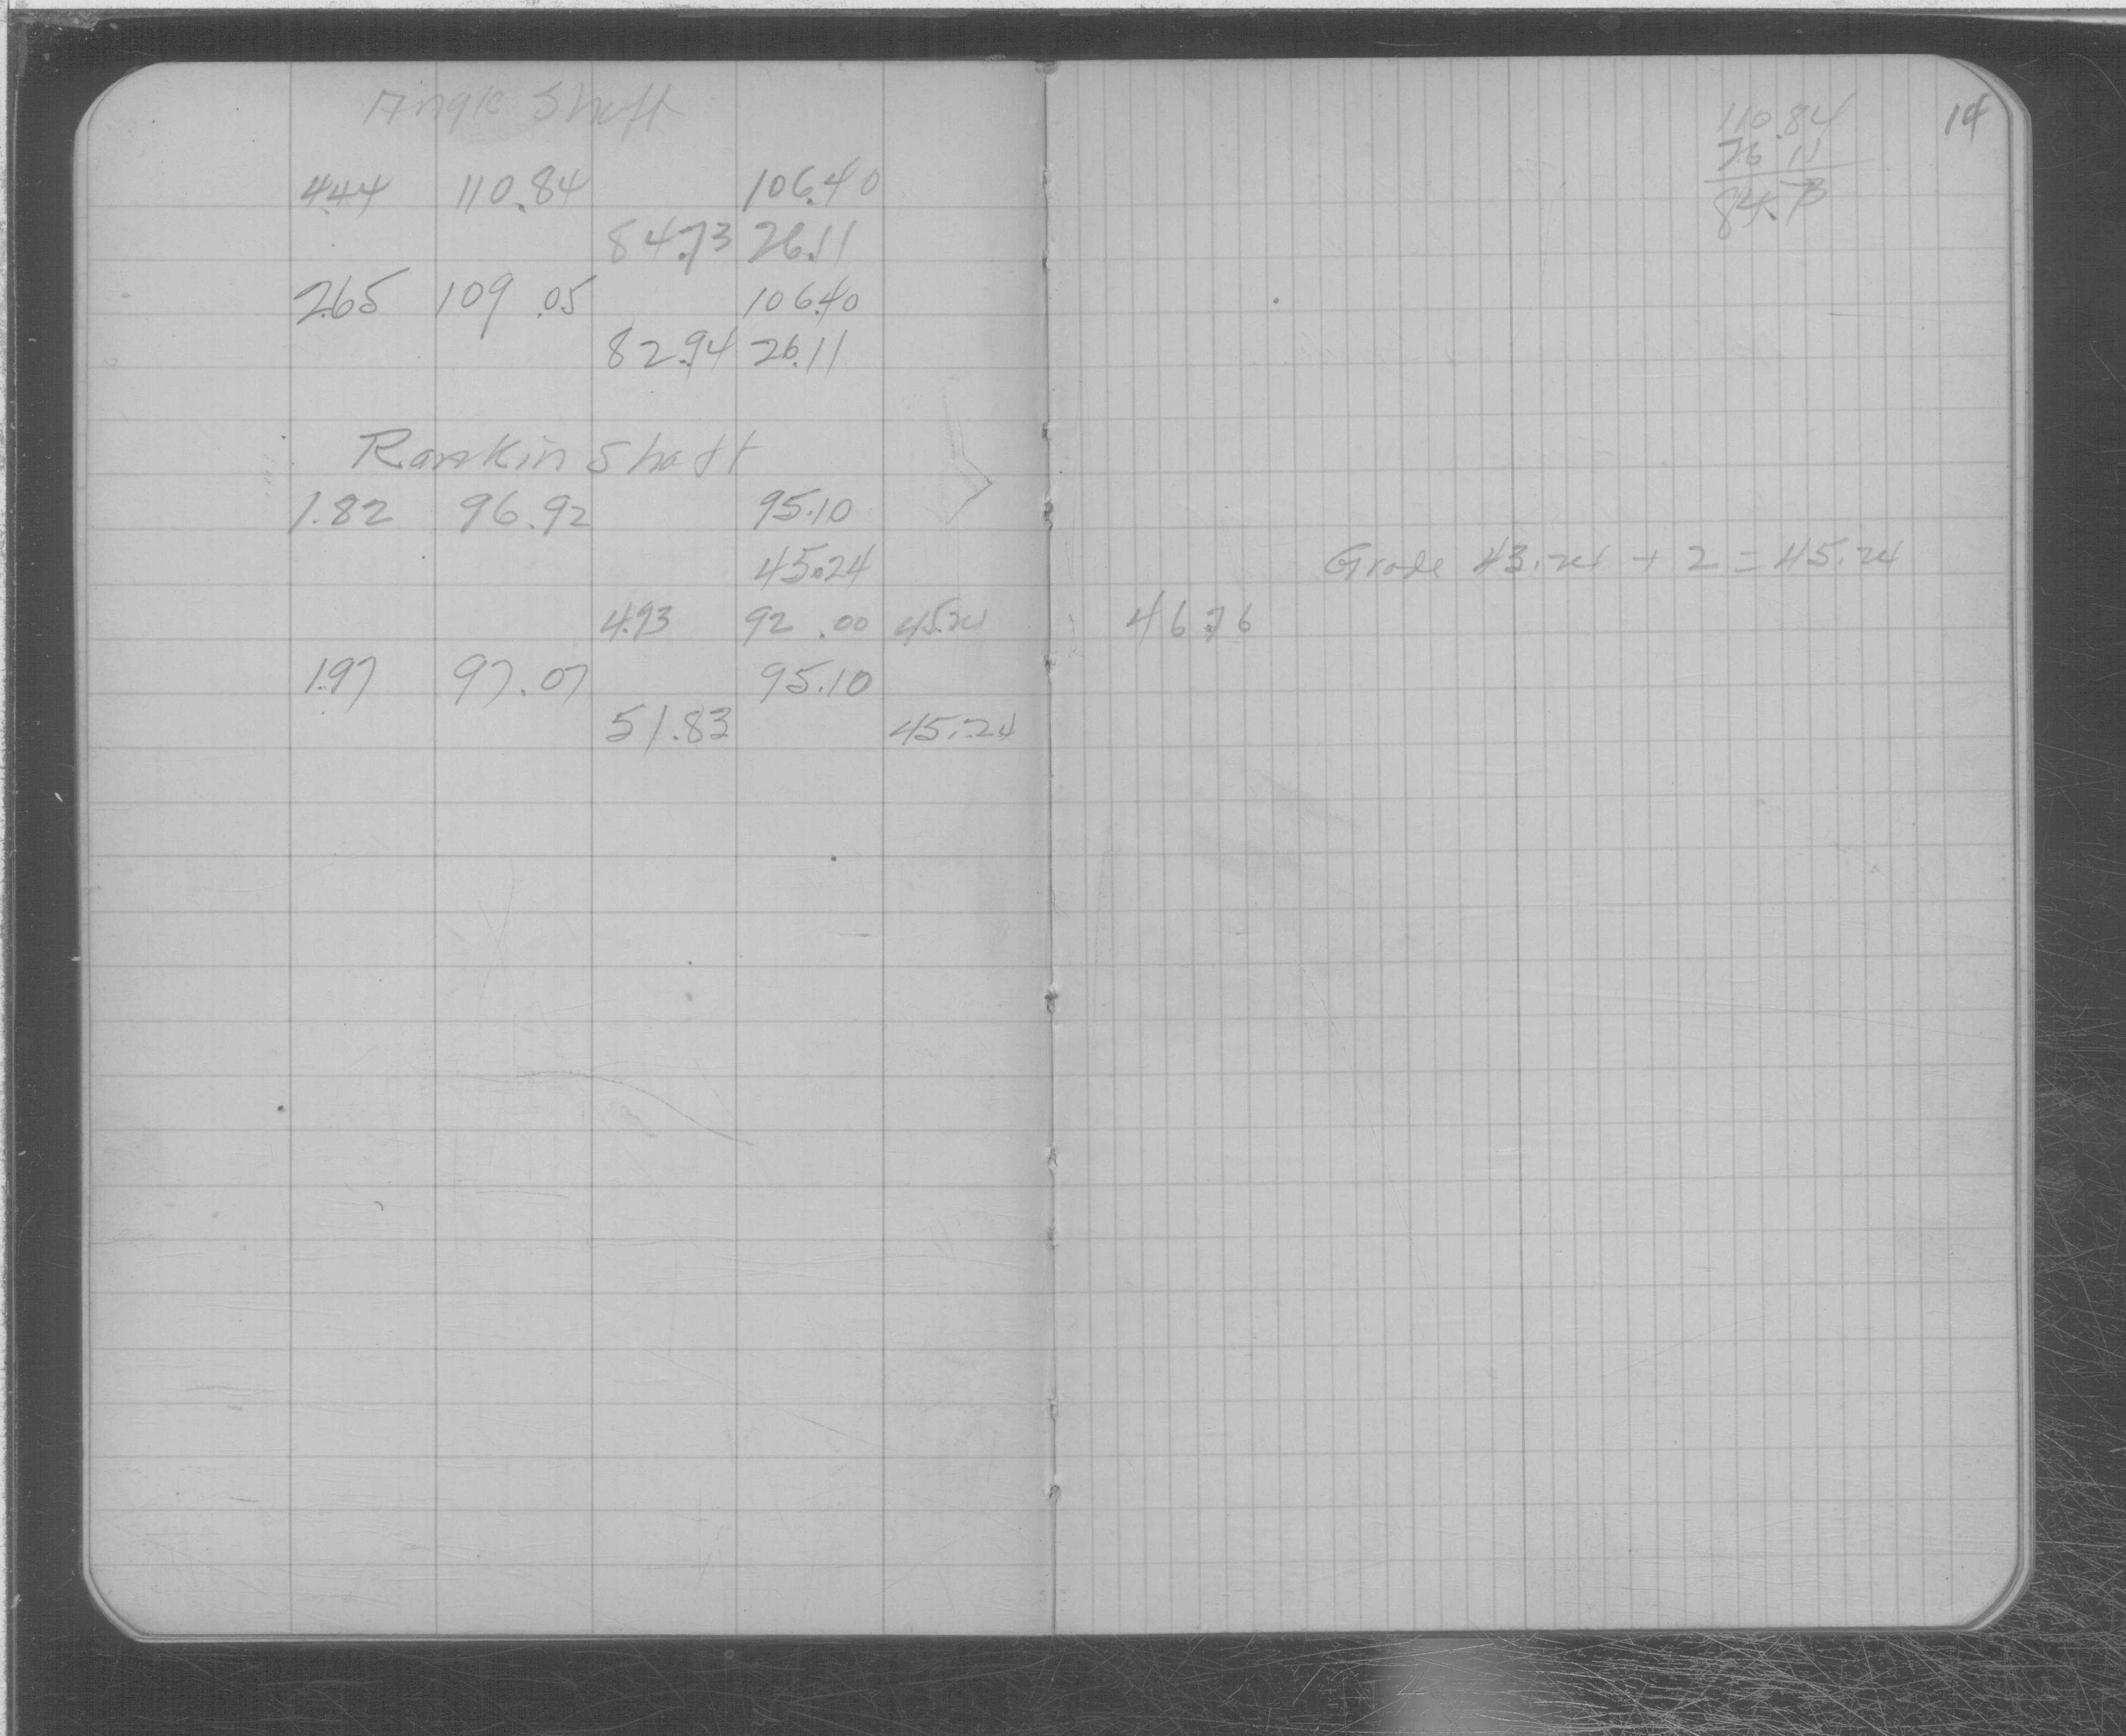 Angle Shaft
4.44 110.84 106.40
84.73 26.11
2.65 109.05 106.40
82.94 26.11
Rankin Shaft
1.82 96.92 95.10
45.24
4.93 92.00 45.24
1.97 97.07 95.10
51.83 45.24
14
110.84
26 11
84.73
Grade 43.24 + 2 = 45.24
46.76